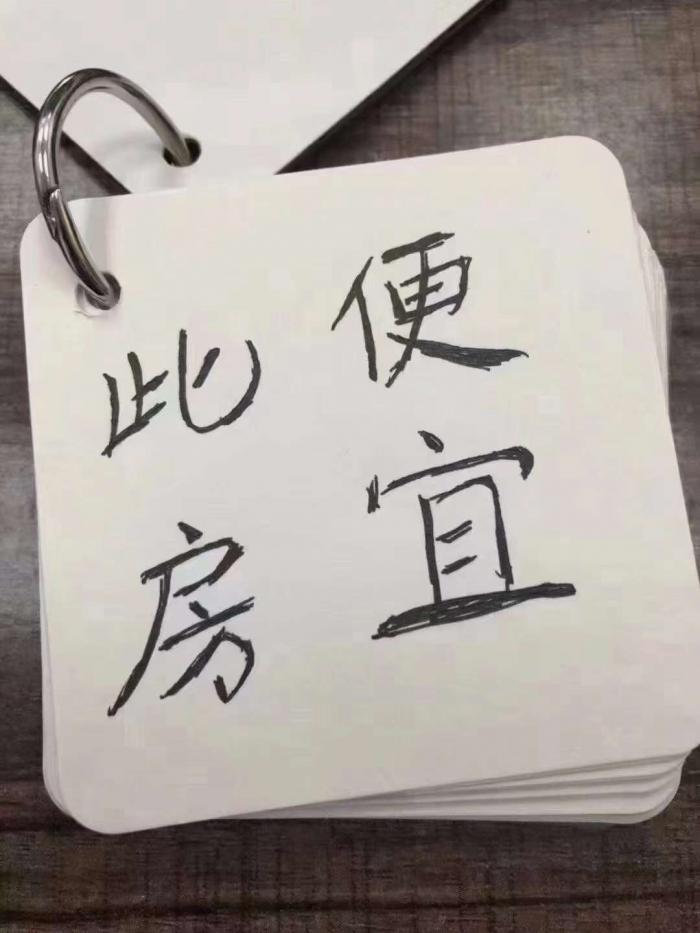 此房
便宜